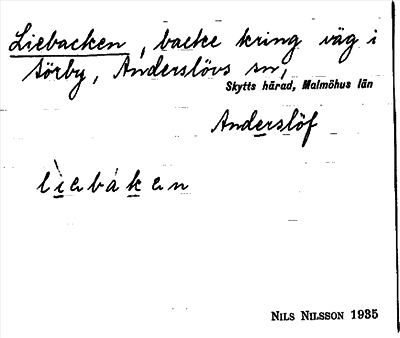 Liebacken, backe kring väg i
Sörby, Anderslövs sn,
Skytts härad, Malmöhus län
Anderslöf
lìebáken
NILS NILSSON 1935